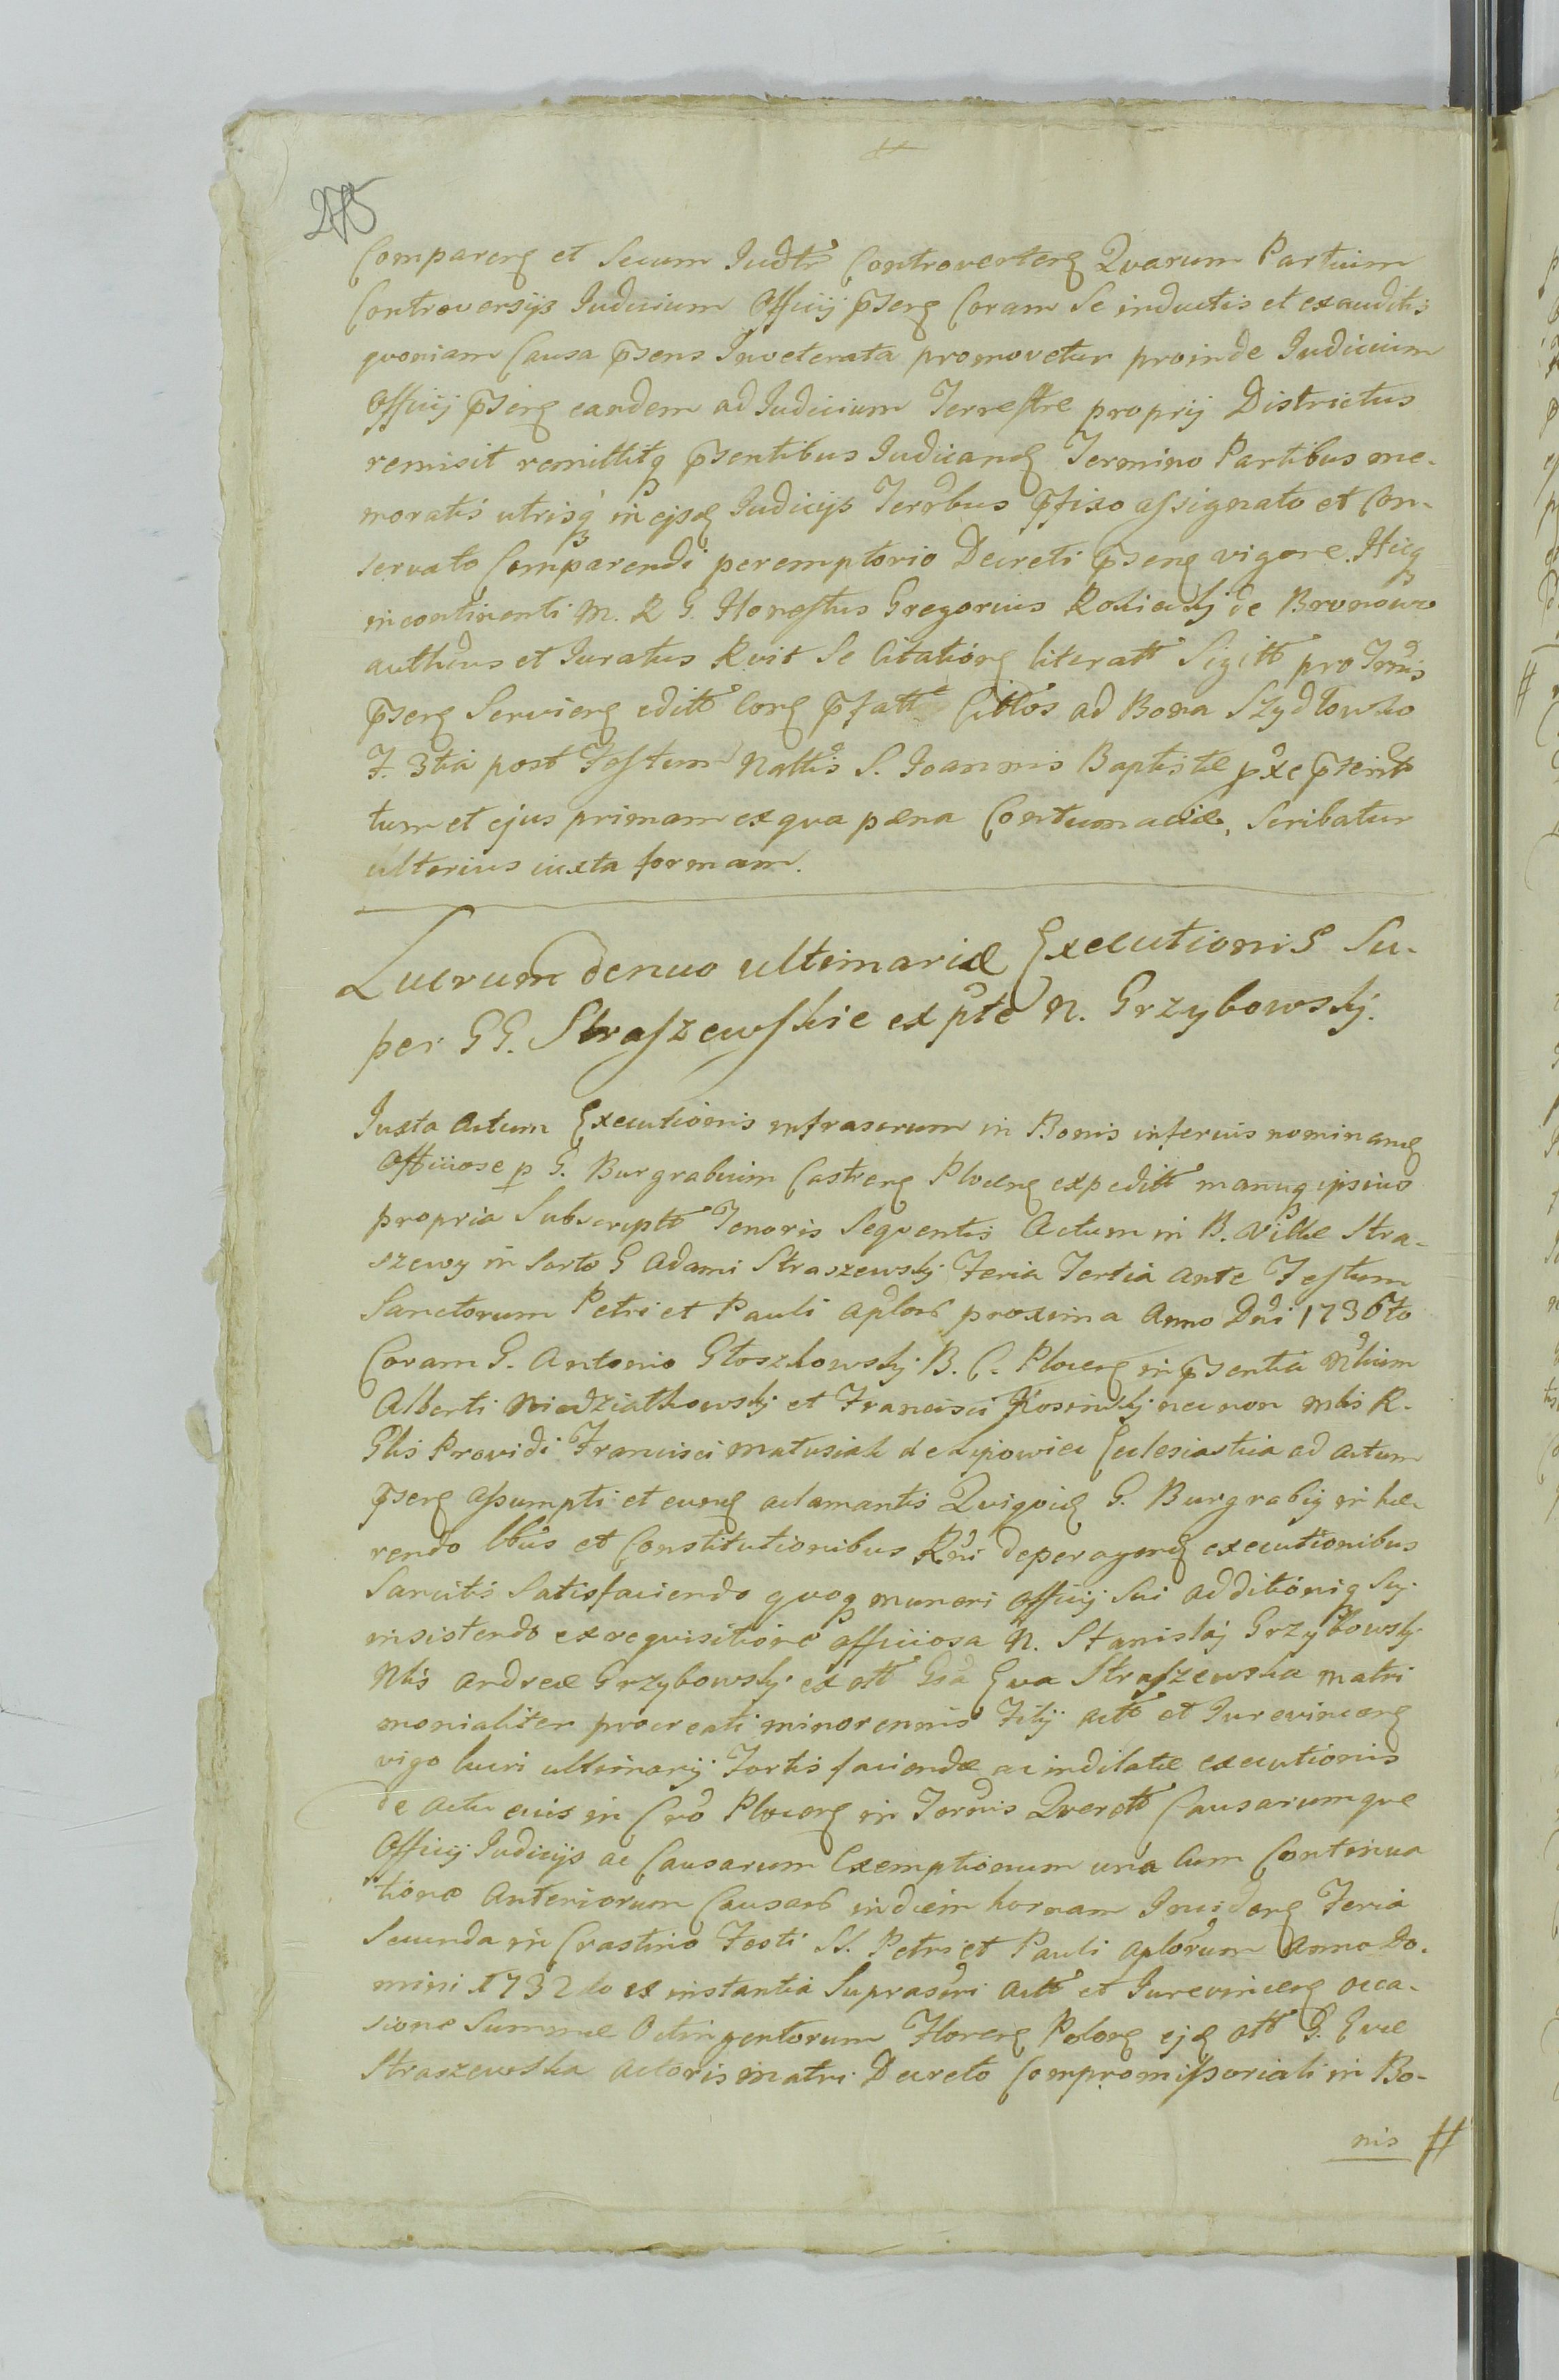 275
Compareng et Secum Judtr Controverteng Quarum Partium
Controversijs Judicium Officij pseng Coram Se inductis et exauditis
quoniam Causa psens Inveterata promovetur proinde Judicium
Officij pseng eandem ad Judicium Terrestre proprij Districtus
remisit remittitq psentibus Judicand Termino Partibus me-
moratis utrisq in ejsd Judicijs Terrbus pfixo assignato et Con-
servato Comparendi peremptorio Decreti pseng vigore. Hicq
incontinenti M. R. G. Honestus Gregorius de Bronowo
authcus et Juratus Rvit Se Citationg literatt Sigitt pro Trmis
pseng Servieng editt Cong pfatt Cittos ad Bona Szydłowko
F. 3tia post Festum Nattis S. Joannis Baptistæ pxe psent
tum et ejus primam ex qva pæna Contumaciæ, Scribatur
ulterius iuxta formam.
Lucrum denuo ultimariæ Executionis Su-
per GG. Straszewskie ex pte N. Grzybowskj.
Juxta Actum Executionis infrascrum in Bonis inferius nominand
Officiose p G. Burgrabium Castreng Ploceng expeditt manuq ipsius
propria Subscriptt Tenoris Seqventis Actum in B. Villæ Stra-
szewy in Sorte G Adami Straszewskj Feria Tertia Ante Festum
Sanctorum Petri et Pauli Aplorb proxima Anno Dni 1736to
Coram G. Antonio Głoszkowskj B. C. Ploceng in psentia Nbium
Alberti Niedziałkowskj et Francisci Kosinskj necnon Mlis R.
Glis Providi Francisci Matusiak de Lipowiec Ecclesiastica ad Actum
pseng Assumpti et eund aclamantis Quiquid G. Burgrabij in hæ-
rendo lbus et Constitutionibus Rni deperagend executionibus
Sancitis Satisfaciendo quoq muneri officij Sui additioniq Suj
insistendo ex requisitione officiosa N. Stanislaj Grzybowskj
Nlis Andreæ Grzybowskj ex ott Gsa Eva Straszewska matri
monialiter procreati minorennis Filij Actt et Jurevinceng
vigo lucri ultimarij Fortis faciendæ ac indilatæ executionis
de Actu eius in Cro Ploceng in Terrmis Querett Causarumque
Officij Judicijs ac Causarum Exemptionum una Cum Continua
tione Anteriorum Causarb in diem hornam Inciden Feria
Secunda in Crastino Festi SS. Petri et Pauli Aplorum Anno Do-
mini 1732do ex instantia Suprascri Actt et Jurevinceng occa-
sione Summæ Octingentorum Floreng Polong ejd ott G. Evæ
Straszewska Actoris matri Decreto Compromissoriali in Bo-
nis #